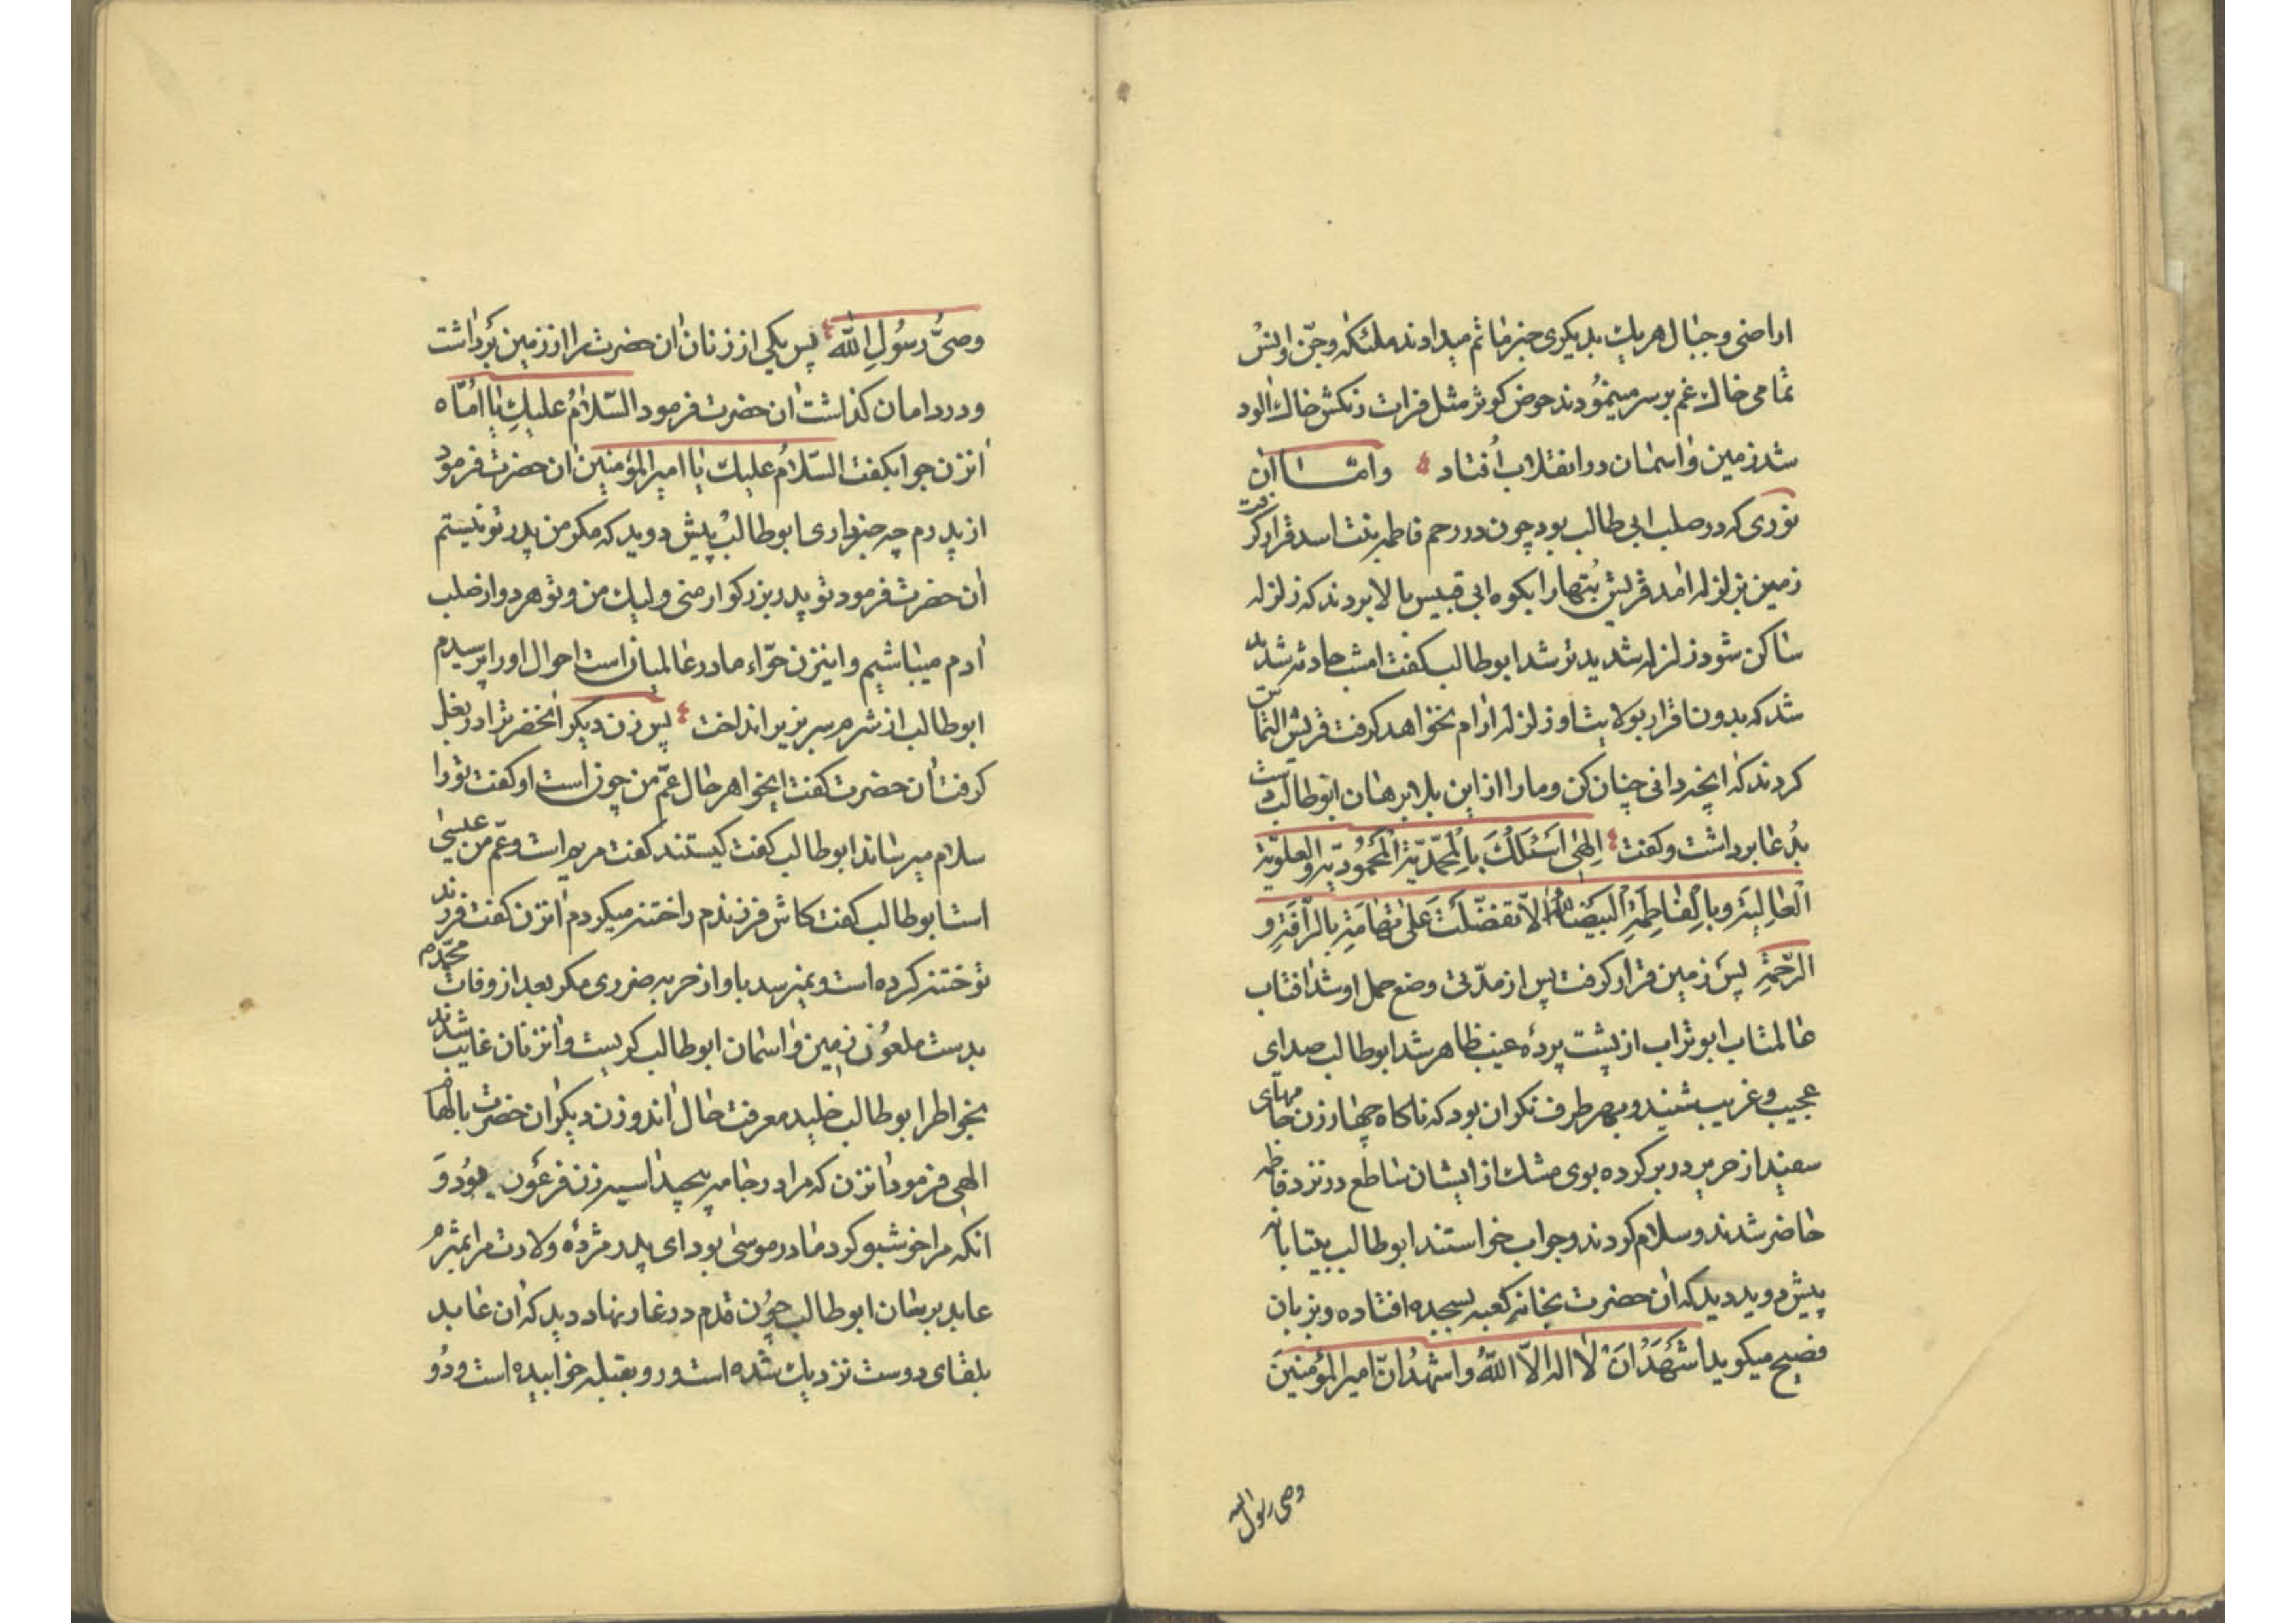 اراضی و جبال هر یك بدیكری خبر ماتم میدادند ملئكه و جنّ و انس
تمامی خاك غم بر سر مینمُودند حوض كوثر مثل فرات رنكش خاك الود
شد زمین و اسمان در انقلاب اُفتاد وامّا ان
نوری كه در صلب ابی طالب بود چون در رحم فاطمه بنت اسد قرار كرفت
زمین بزلزله امد قریش بُتها را بكوه ابی قبیس بالا بردند كه زلزله
ساكن شود زلزله شدید تر شد ابو طالب كفت امشب حادثه شدید
شد كه بدون اقرار بولایت او زلزله ارام نخواهد كرفت قریش التماس
كردند كه انچه دانی چنان كن و ما را از این بلا برهان ابو طالب دست
بدُعا برداشت و كفت اِلهٰی اَسْئَلُكَ بِالْمُحَمَّدِیَّةِ الْمَحْمُودیّةِ و العلویّة
الْعٰالِیَةِ و بِالْفٰاطِمِیَّةِ الْبَیْضٰاءِ اِلاّ تَفَضَّلْتَ عَلیٰ تهٰامَةِ بِالرَّأْفَةِ وَ
الرَّحْمَةِ پس زمین قرار كرفت پس از مدّتی وضع حمل او شد افتاب
عالمتاب ابو تراب از پشت پردهٔ غیب ظاهر شد ابو طالب صدای
عجیب و غریب شنید و بهر طرف نكران بود كه ناكاه چهار زن جامهای
سفید از حریر در بر كرده بوی مشك از ایشان ساطع در نزد فاطمه
حاضر شدند و سلام كردند و جواب خواستند ابو طالب بیتابانه
پیش دوید دید كه ان حضرت بخانه كعبه بسجده افتاده و بزبان
فصیح میكوید اشْهَدُ اَنْ لا اله الاّ اللّهُ و اشهدُ انّ امیر المؤمنینَ
وصی رسول الله
وصیُّ رسُولِ اللّه پس یكی از زنان ان حضرت را از زمین برداشت
و در دامان كذاشت ان حضرت فرمود السّلامُ علیكِ یا اُمّاه
انزن جوابكفت السّلامُ علیك یا امیر المؤمنین ان حضرت فرمود
از پدرم چه خبر داری ابو طالب پیش دوید كه مكر من پدر تو نیستم
ان حضرت فرمود تو پدر بزركوار منی ولیك من و تو هر دو از صلب
ادم میباشیم و اینزن حوّاء مادر عالمیان است احوال او را پرسیدم
ابو طالب از شرم سر بزیر انداخت پس زن دیكر انحضرترا در بغل
كرفت ان حضرت كفت ایخواهر حال عمّ من چون است او كفت تو را
سلام میرساند ابو طالب كفت كیستند كفت مریم است و عمّ من عیسیٰ
است ابو طالب كفت كاش فرزندم را ختنه میكردم انزن كفت فرزند
تو ختنه كرده است و نمیرسد باو از حربه ضرری مكر بعد از وفات محمّد
بدست ملعُون زمین و اسمان ابو طالب كریست و انزنان غایب شدند
بخواطر ابو طالب خلید معرفت حال اندو زن دیكر ان حضرت بالهام
الهی فرمود انزن كه مرا در جامه پیچید اسیه زن فرعون بُود وَ
انكه مرا خوشبو كرد مادر موسیٰ بود ای پدر مژدهٔ ولادت مرا بمثرم
عابد برسان ابو طالب چون قدم در غار نهاد دید كه ان عابد
بلقای دوست نزدیك شده است و رو بقبله خوابیده است و دُو